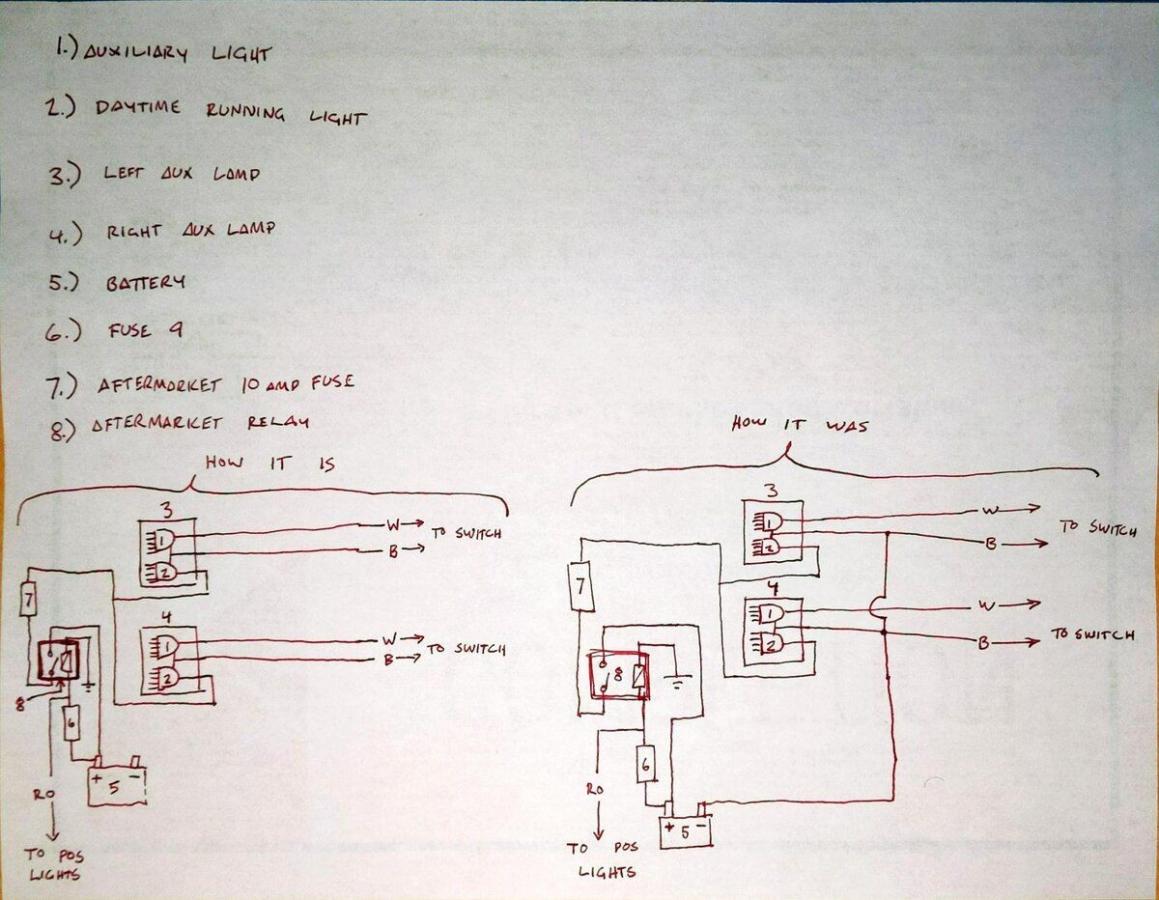 1.) AUXILIARY LIGHT
2.) DAYTIME RUNNING LIGHT
3.) LEFT AUX LAMP
4.) RIGHT AUX LAMP
5.) BATTERY
6.) FUSE 9
7.) AFTERMARKET 10 AMP FUSE
8.) AFTERMARKET RELAY
HOW IT IS
3
1
2
W
B
TO SWITCH
7
4
1
2
W
B
TO SWITCH
8
6
+ 5 -
RO
TO POS
LIGHTS
HOW IT WAS
3
1
2
W
B
TO SWITCH
7
4
1
2
W
B
TO SWITCH
8
6
+ 5 -
RO
TO POS
LIGHTS